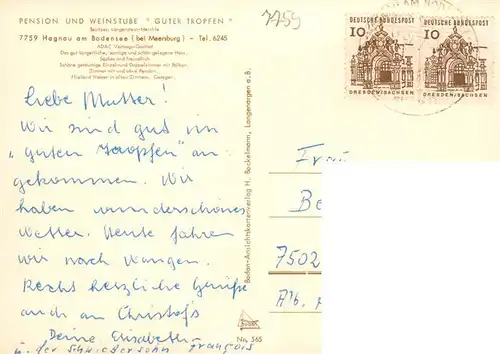 PENSION UND WEINSTUBE "GUTER TROPFEN"
Besitzer: Langenstein-Meichle
7759 Hagnau am Bodensee (bei Meersburg) - Tel. 6245
ADAC Vertrags-Gasthof
Das gut bürgerliche, sonnige und schön gelegene Haus.
Sauber und freundlich
Schöne geräumige Einzel- und Doppelzimmer mit Balkon
Zimmer mit und ohne Pension.
Fließend Wasser in allen Zimmern. Garagen.
7759
DEUTSCHE BUNDESPOST
10
DRESDEN/SACHSEN
DEUTSCHE BUNDESPOST
10
DRESDEN/SACHSEN
Liebe Mutter!
Wir sind gut im
"guten Tropfen" an-
gekommen. Wir
haben wunderschönes
Wetter. Heute fahren
wir nach Wangen.
Recht herzliche Grüße
auch an Christofs
Deine Elisabeth
u. der Schwiegersohn François
Bodan-Ansichtskartenverlag H. Bockelmann, Langenargen a. B.
No. 565
Frau
Be
7502